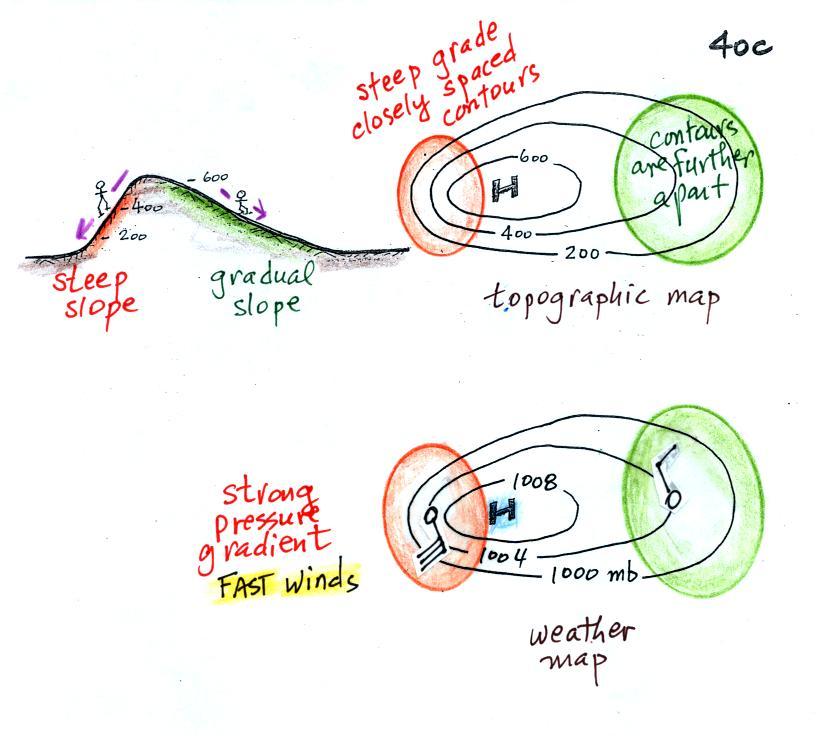 40c
steep grade
closely spaced
contours
600
400
200
contours
are further
apart
topographic map
- 600
- 400
- 200
steep
slope
gradual
slope
strong
pressure
gradient
FAST winds
1008
H
1004
1000 mb
weather
map
H